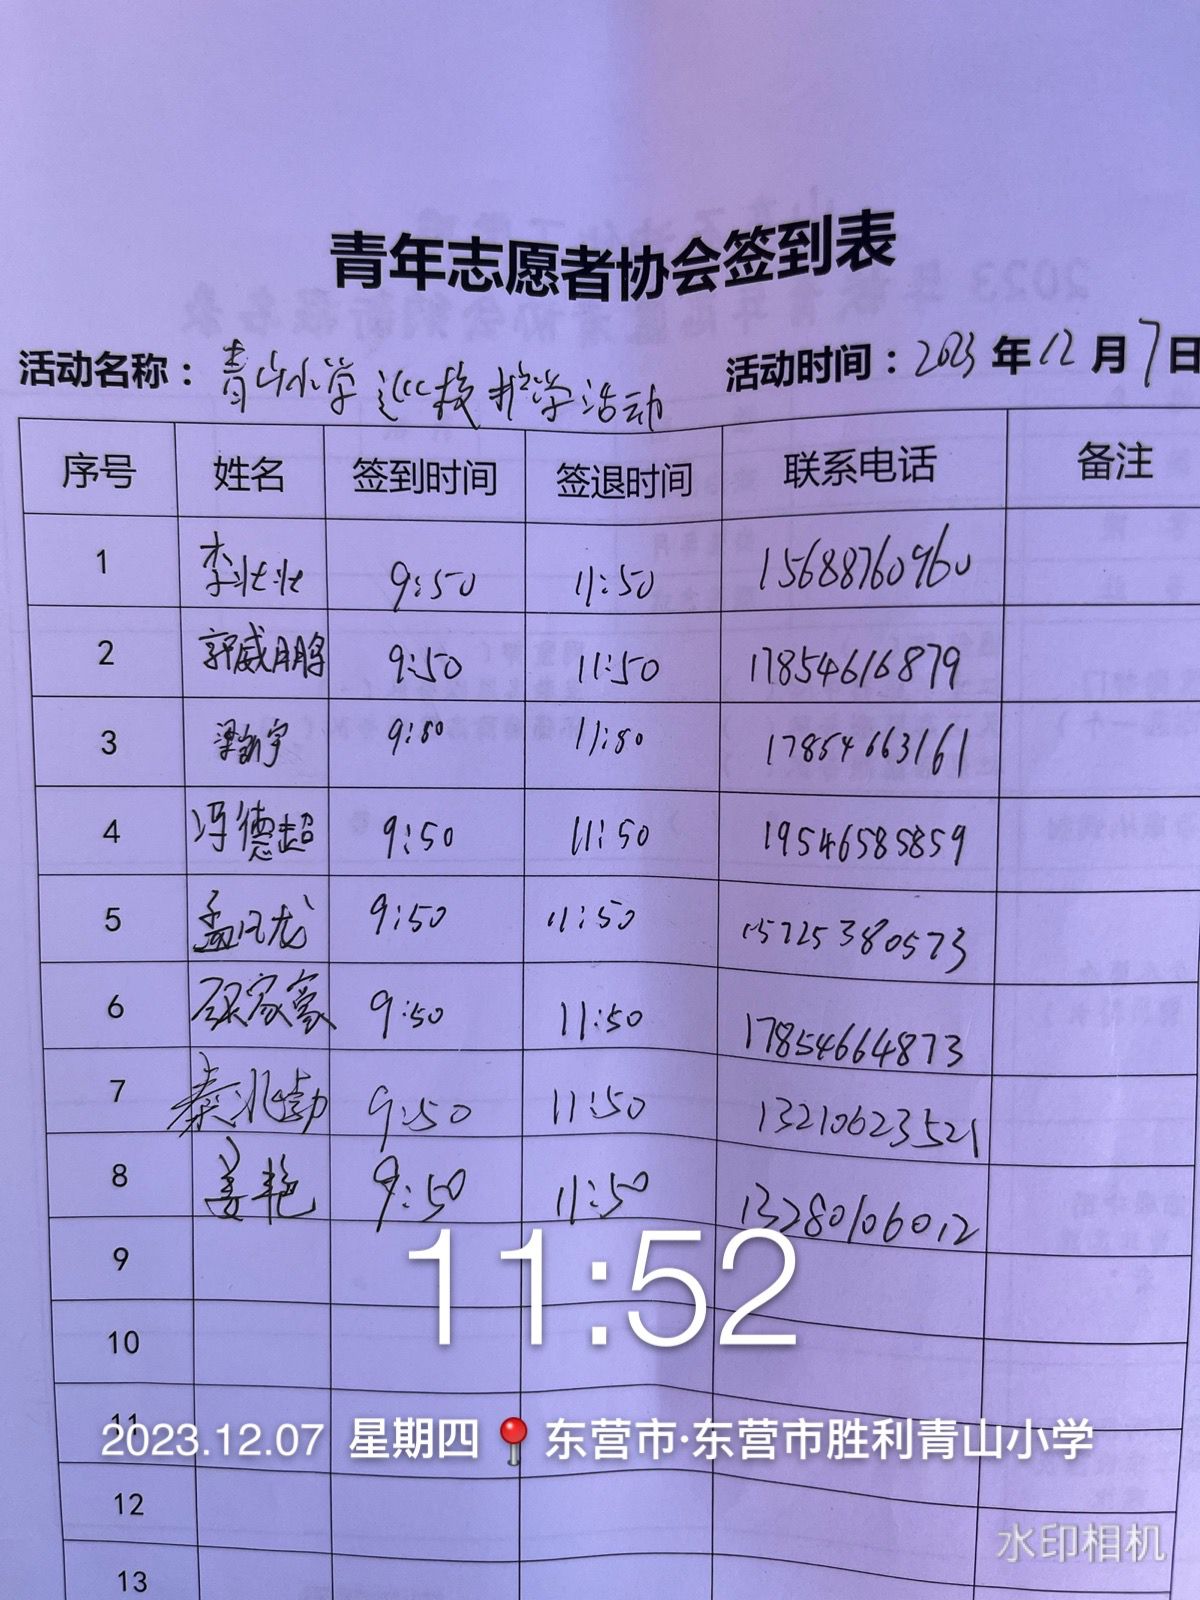 青年志愿者协会签到表
活动名称：青山小学巡校护学活动 活动时间：2023年12月7日
序号 姓名 签到时间 签退时间 联系电话 备注
1 李壮壮 9:50 11:50 15688760960
2 郭威鹏 9:50 11:50 17854616879
3 9:50 11:50 17854663161
4 冯德超 9:50 11:50 19546585859
5 孟凡龙 9:50 11:50 15725380573
6 顾家豪 9:50 11:50 17854664873
7 秦兆勃 9:50 11:50 13210623521
8 姜艳 9:50 11:50 13280106012
9
11:52
10
11
2023.12.07 星期四 东营市·东营市胜利青山小学
12
水印相机
13